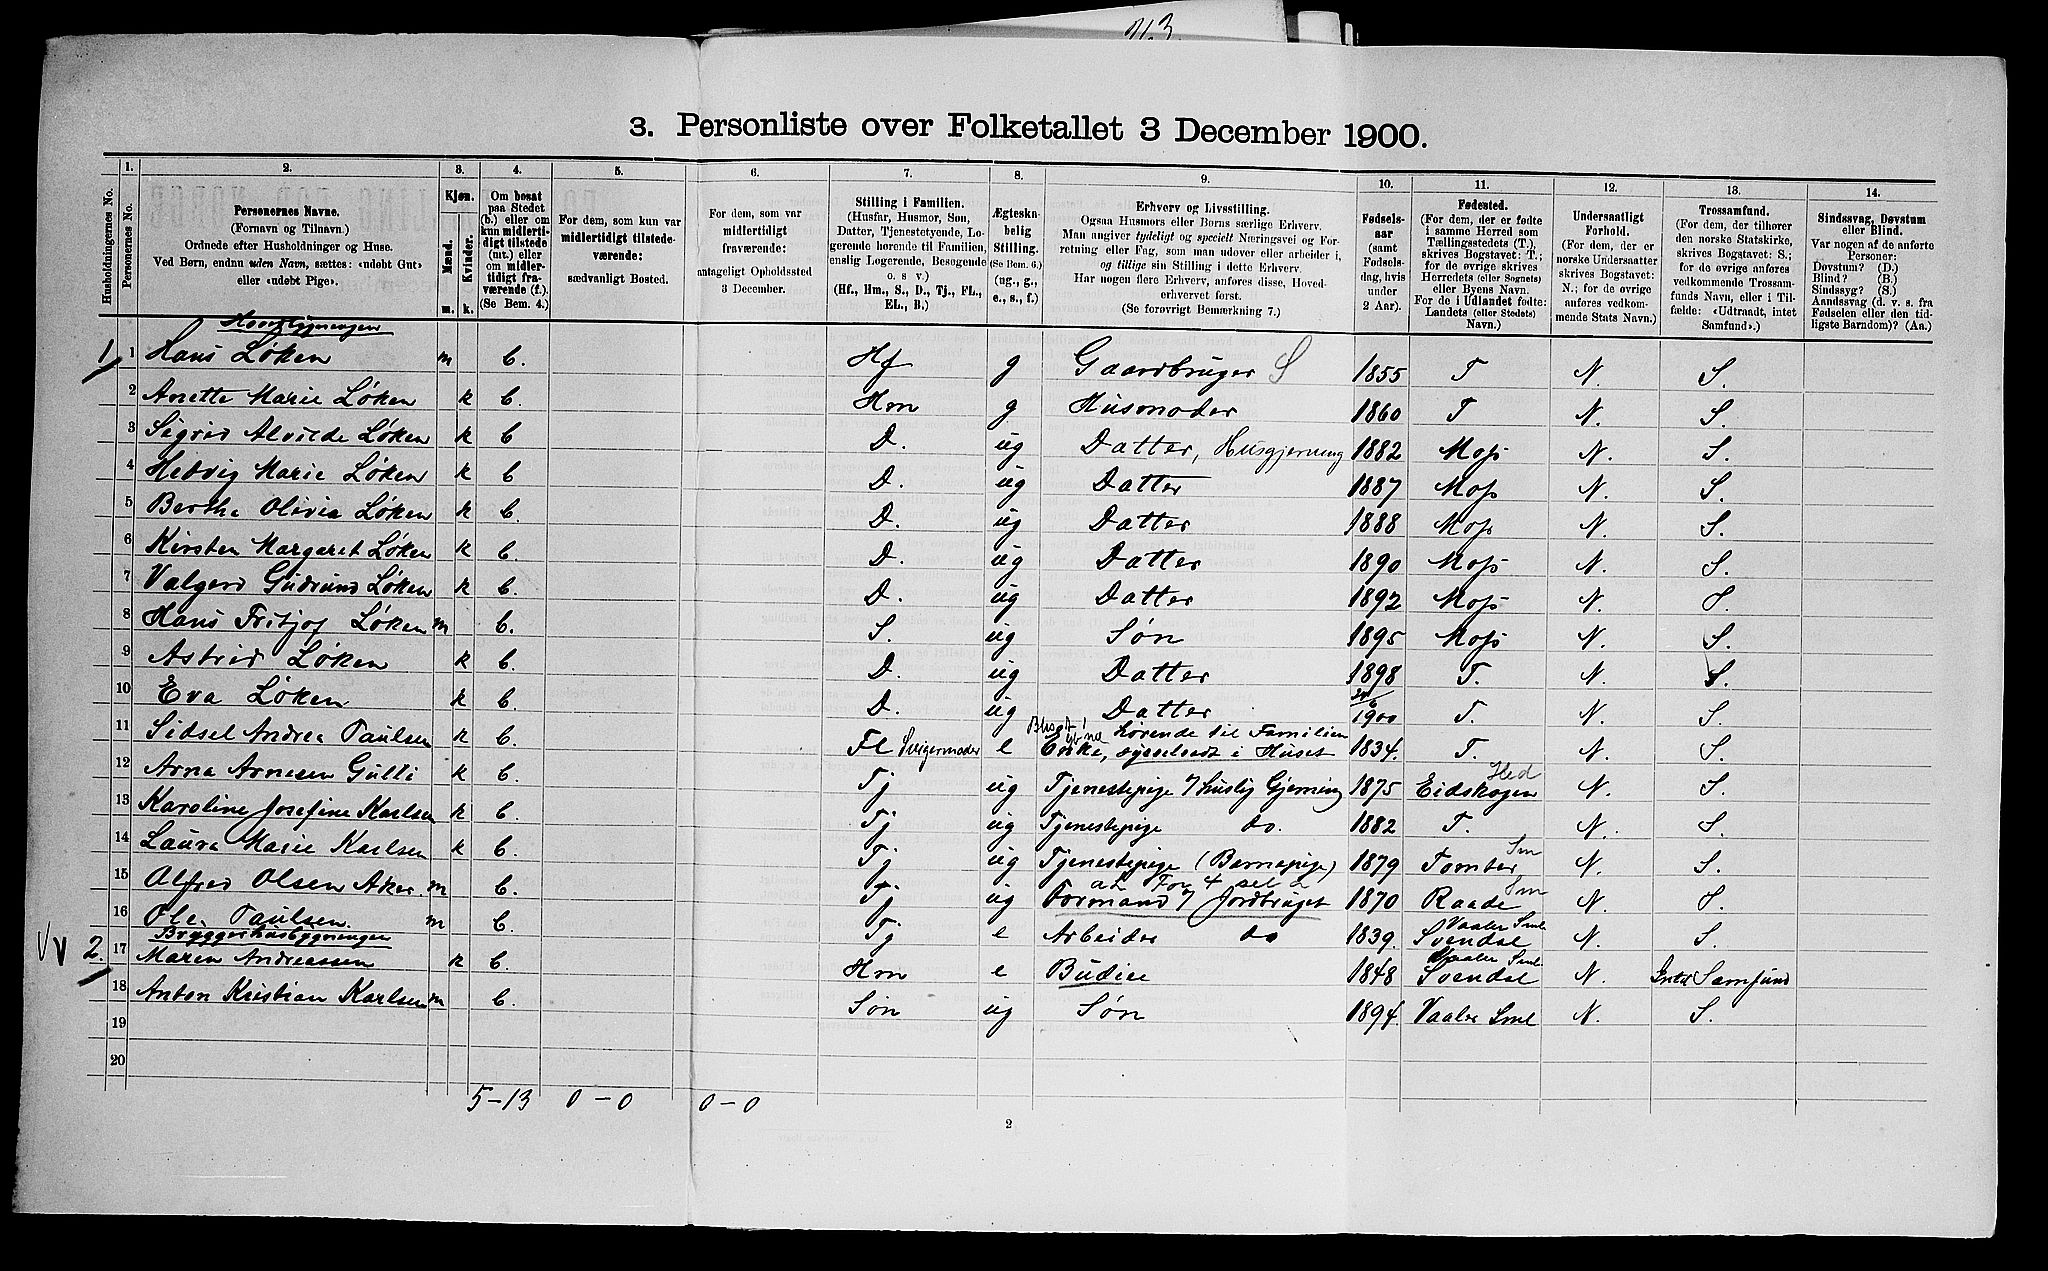 3. Personliste over Folketallet 3 December 1900.
1. 2. 3. 4. 5. 6. 7. 8. 9. 10. 11. 12. 13. 14.
Husholdningernes No.
Personernes No.
Personernes Navne.
(Fornavn og Tilnavn.)
Ordnede efter Husholdninger og Huse.
Ved Børn, endnu uden Navn, sættes: «udøbt Gut»
eller «udøbt Pige».
Kjøn.
Mænd.
Kvinder.
m. k.
Om bosat
paa Stedet
(b.) eller om
kun midlerti-
digt tilstede
(mt.) eller
om midler-
tidigt fra-
værende (f.).
(Se Bem. 4.)
For dem, som kun var
midlertidigt tilstede-
værende:
sædvanligt Bosted.
For dem, som var
midlertidigt
fraværende:
antageligt Opholdssted
3 December.
Stilling i Familien.
(Husfar, Husmor, Søn,
Datter, Tjenestetyende, Lo-
gerende hørende til Familien,
enslig Logerende, Besøgende
o. s v.)
(Hf., Hm., S., D., Tj., FL.,
EL., B.)
Ægteska-
belig
Stilling.
(Se Bem. 6.)
(ug., g.,
e., s., f.)
Erhverv og Livsstilling.
Ogsaa Husmors eller Børns særlige Erhverv.
Man angiver tydeligt og specielt Næringsvei og For-
retning eller Fag, som man udøver eller arbeider i,
og tillige sin Stilling i dette Erhverv.
Har nogen flere Erhverv, anføres disse, Hoved-
erhvervet først.
(Se forøvrigt Bemærkning 7.)
Fødsels-
aar
(samt
Fødsels-
dag, hvis
under
2 Aar).
Fødested.
(For dem, der er fødte
i samme Herred som
Tællingsstedets (T.),
skrives Bogstavet: T.;
for de øvrige skrives
Herredets (eller Sognets)
eller Byens Navn.
For de i Udlandet fødte:
Landets (eller Stedets)
Navn.)
Undersaatligt
Forhold.
(For dem, der er
norske Undersaatter
skrives Bogstavet:
N.; for de øvrige
anføres vedkom-
mende Stats Navn.)
Trossamfund.
(For dem, der tilhører
den norske Statskirke,
skrives Bogstavet: S.;
for de øvrige anføres
vedkommende Trossam-
funds Navn, eller i Til-
fælde: «Udtraadt, intet
Samfund».)
Sindssvag, Døvstum
eller Blind.
Var nogen af de anførte
Personer:
Døvstum? (D.)
Blind? (B.)
Sindssyg? (S.)
Aandssvag (d. v. s. fra
Fødselen eller den tid-
ligste Barndom)? (Aa.)
Hovedbygningen
1 1 Hans Løken m b. Hf g Gaardbruger S 1855 T N. S.
2 Anette Marie Løken k b. Hm g Husmoder 1860 T N. S.
3 Sigrid Alvilde Løken k b D. ug Datter, Husgjerning 1882 Moss N. S.
4 Hedvig Marie Løken k b D. ug Datter 1887 Moss N. S.
5 Berthe Olivia Løken k b. D. ug Datter 1888 Moss N. S.
6 Kirsten Margaret Løken k b. D. ug Datter 1890 Moss N. S.
7 Valgerd Gudrund Løken k b. D. ug Datter 1892 Moss N. S.
8 Hans Fritjof Løken m b. S. ug Søn 1895 Moss N. S.
9 Astrid Løken k b. D. ug Datter 1898 T. N. S.
10 Eva Løken k b. D. ug Datter 1900 T. N. S.
11 Sidsel Andrea Paulsen k b. Fl Svigermoder e Enke, hørende til Familien sysselsadt i Huset 1834. T. N. S.
12 Arna Arnesen Gulli k b. Tj ug Tjenestepige 7 huslig Gjerning 1875 Eidskogen Hed N. S.
13 Karoline Josefine Karlsen k b. Tj ug Tjenestepige do. 1882 T. N. S.
14 Laura Marie Karlsen k b. Tj ug Tjenestepige (Barnepige) 1879 Tomter Sm N. S.
15 Alfred Olsen Aker m b. Tj. ug Formand 7 Jordbruget 1870 Raade Sm N. S.
16 Ole Paulsen m b. Tj e Arbeider do 1839. Svendal Vaaler Sml. N. S.
Bryggerhusbygningen
2. 17 Maren Andreassen k b. Hm e Budeie 1848 Svendal Vaaler Sml. N. Intet Samfund
18 Anton Kristian Karlsen m b. Søn ug Søn 1894. Vaaler Sml N. S.
19
20
5-13 0-0 0-0
2